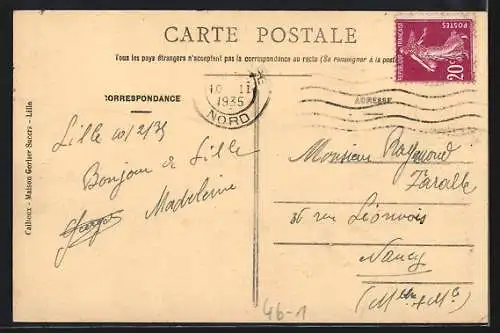 CARTE POSTALE
Tous les pays étrangers n'acceptent pas la correspondance au recto (Se renseigner à la poste
CORRESPONDANCE
ADRESSE
10 II
1935
NORD
POSTES
REPUBLIQUE FRANÇAISE
20c
Lille 10/2/35
Bonjour de Lille
Madeleine
Georges
Monsieur Raymond
36 rue
Nancy
(Mlle et Mle)
Cailteux - Maison Gorlier Succrs - Lille
46-1